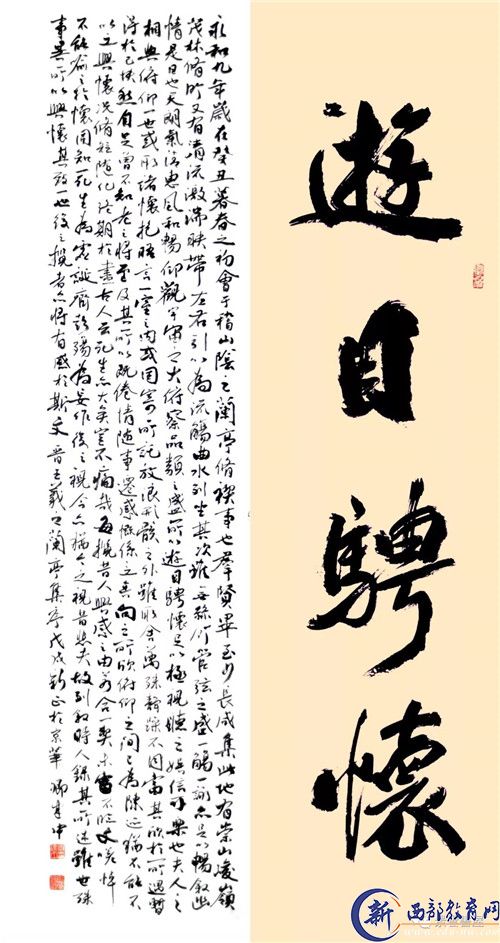 遊目騁懷
永和九年歲在癸丑暮春之初會于稽山陰之蘭亭脩禊事也羣賢畢至少長咸集此地有崇山峻嶺
茂林脩竹又有清流激湍映帶左右引以為流觴曲水列坐其次雖無絲竹管弦之盛一觴一詠亦足以暢敘幽
情是日也天朗氣清惠風和暢仰觀宇宙之大俯察品類之盛所以遊目騁懷足以極視聽之娛信可樂也夫人之
相與俯仰一世或取諸懷抱晤言一室之內或因寄所託放浪形骸之外雖取舍萬殊靜躁不同當其欣於所遇暫
得於己快然自足曾不知老之將至及其所以既倦情隨事遷感慨係之矣向之所欣俯仰之間已為陳迹猶不能不
以之興懷況脩短隨化終期於盡古人云死生亦大矣豈不痛哉每攬昔人興感之由若合一契未嘗不臨文嗟悼
不能喻之於懷固知一死生為虛誕齊彭殤為妄作後之視今亦猶今之視昔悲夫故列敘時人錄其所述雖世殊
事異所以興懷其致一也後之攬者亦將有感於斯文晉王羲之蘭亭集序戊戌新正於京華
新 西部教育网